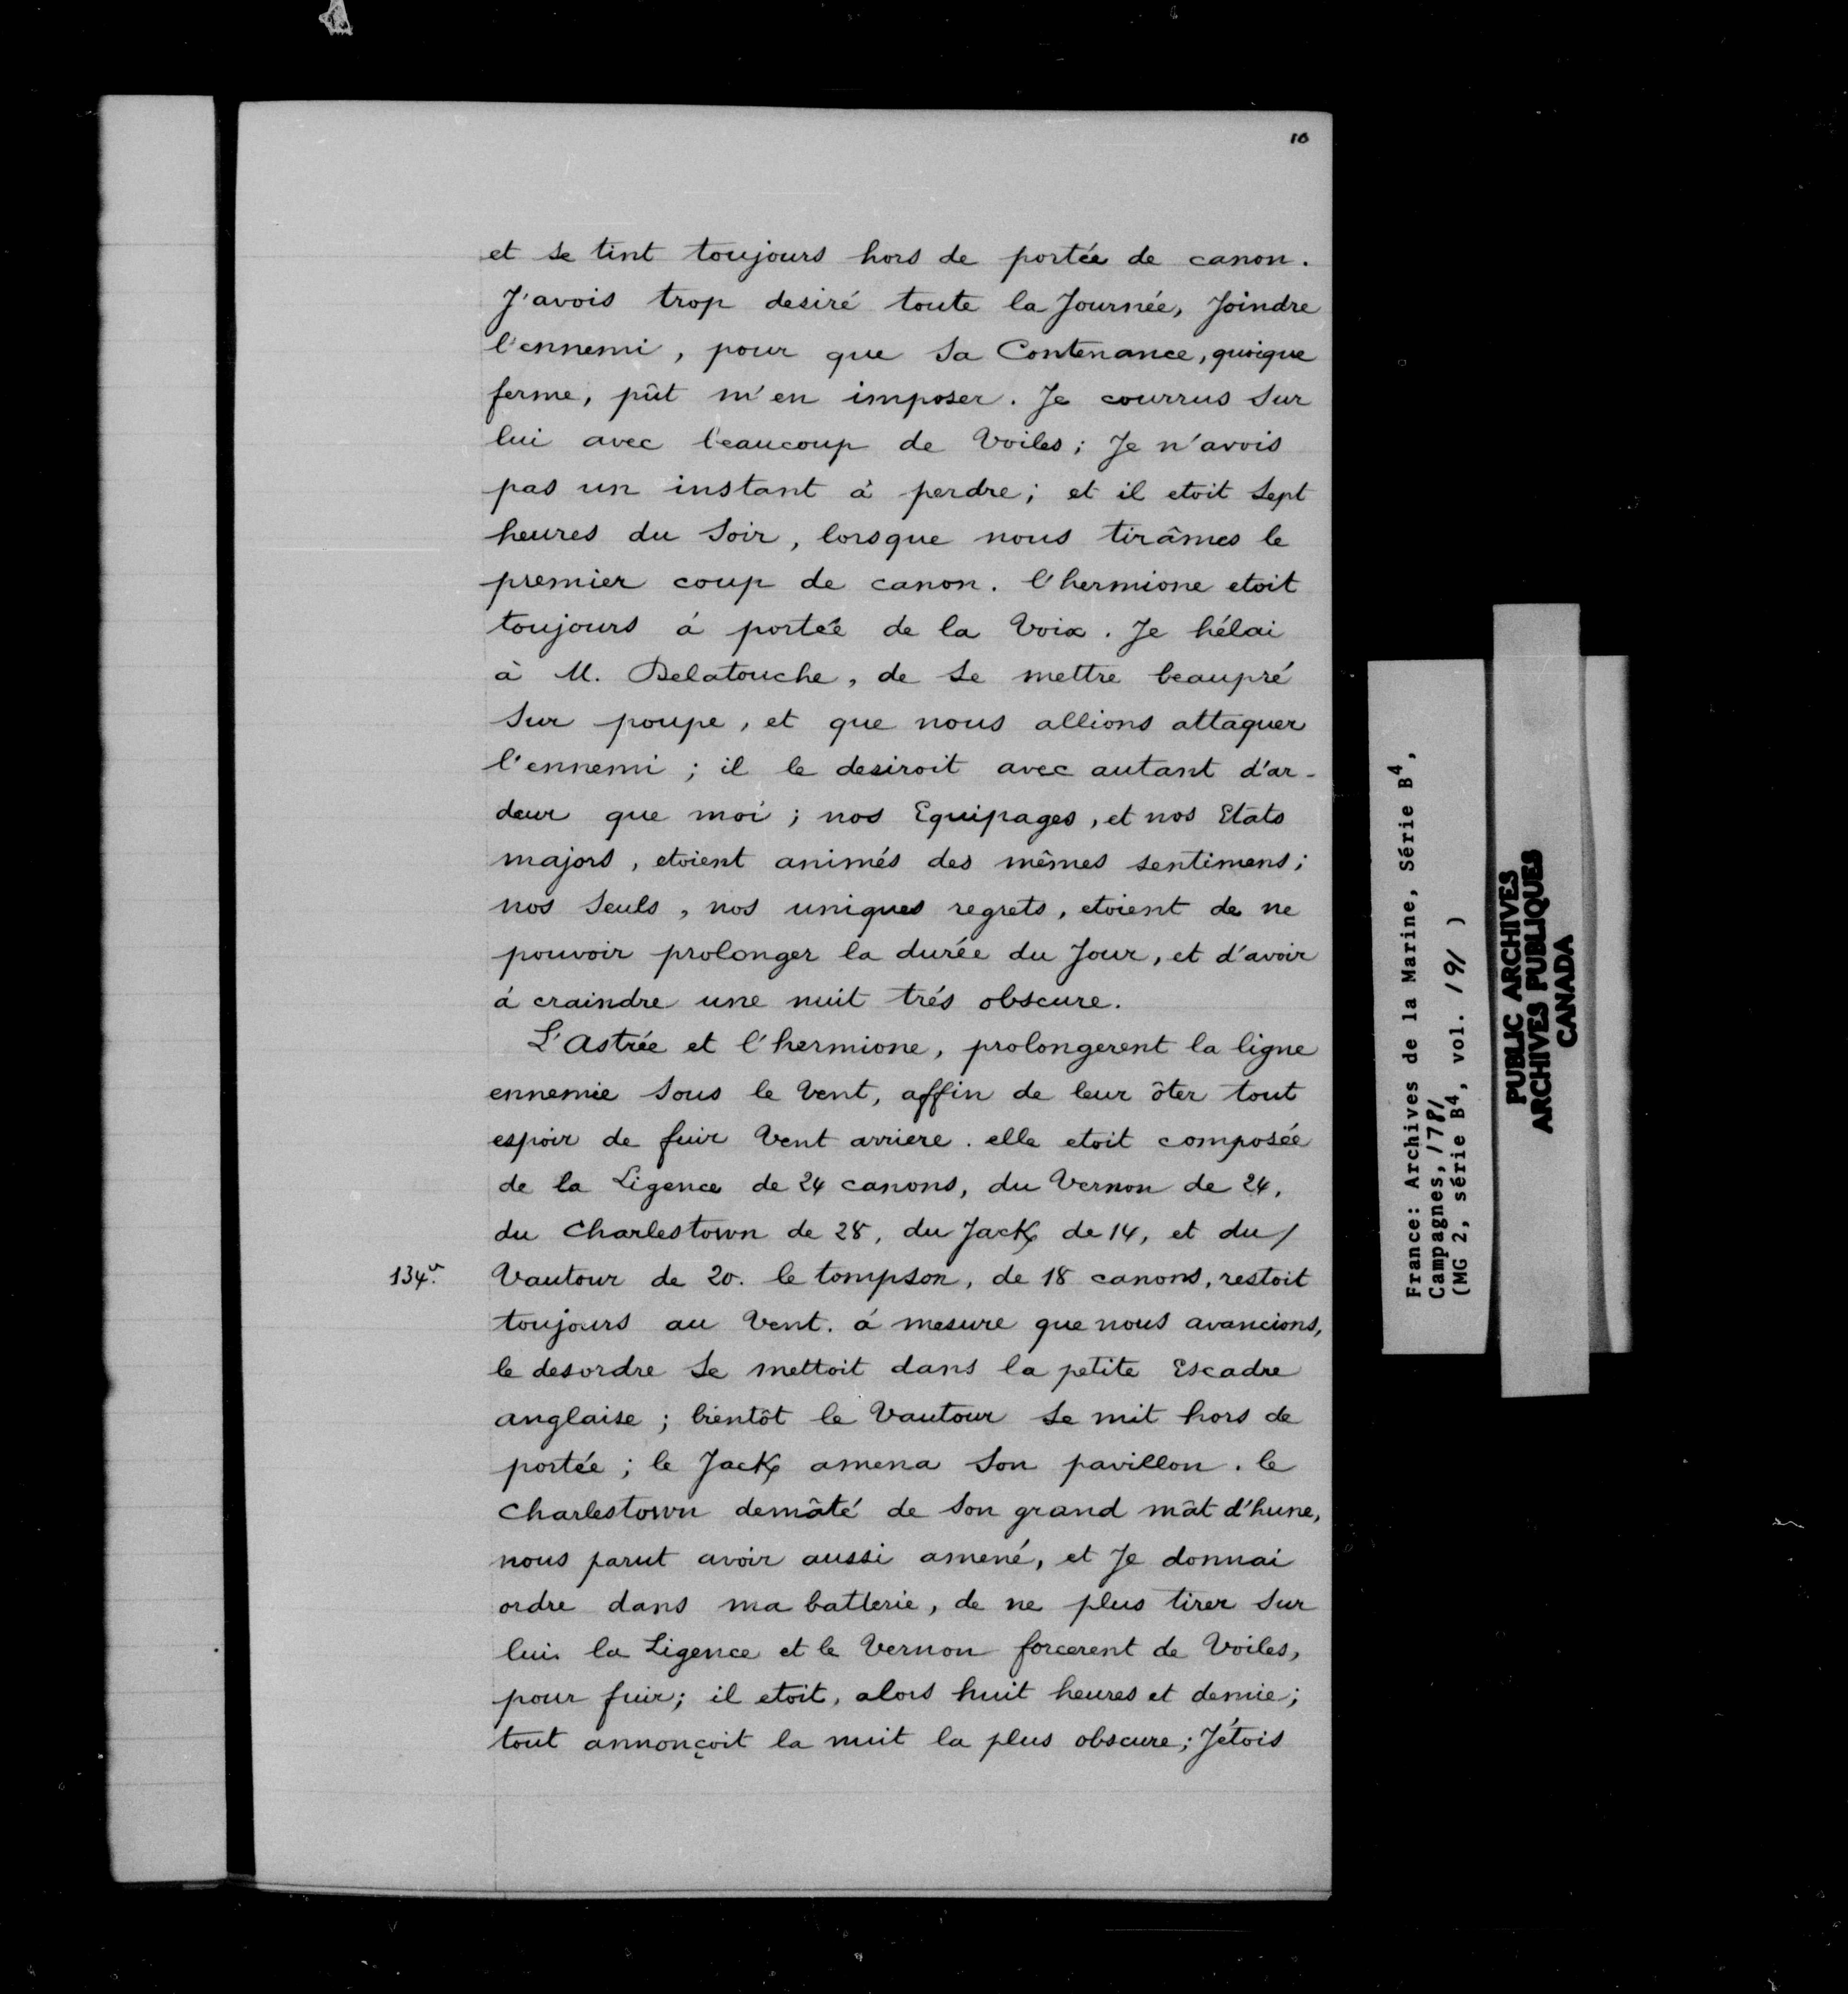 10
et se tint toujours hors de portée de canon.
J'avois trop desiré toute la Journée, Joindre
l'ennemi, pour que sa Contenance, quoique
ferme, pût m'en imposer. Je courrus sur
lui avec beaucoup de Voiles; Je n'avois
pas un instant à perdre; et il etoit sept
heures du soir, lorsque nous tirâmes le
premier coup de canon. l'hermione etoit
toujours á portée de la Voix. Je hélai
à M. Delatouche, de se mettre beaupré
sur poupe, et que nous allions attaquer
l'ennemi; il le desiroit avec autant d'ar-
deur que moi; nos Equipages, et nos Etats
majors, etoient animés des mêmes sentimens;
nos seuls, nos uniques regrets, etoient de ne
pouvoir prolonger la durée du Jour, et d'avoir
á craindre une nuit trés obscure.
L'Astrée et l'hermione, prolongerent la ligne
ennemie sous le Vent, affin de leur ôter tout
espoir de fuir Vent arriere. elle etoit composée
de la Ligence de 24 canons, du Vernon de 24,
du Charlestown de 28, du Jack de 14, et du /
134v. Vautour de 20. le tompson, de 18 canons, restoit
toujours au Vent. á mesure que nous avancions,
le desordre se mettoit dans la petite Escadre
anglaise; bientôt le Vautour se mit hors de
portée; le Jack amena son pavillon. le
Charlestown demâté de son grand mât d'hune,
nous parut avoir aussi amené, et Je donnai
ordre dans ma batterie, de ne plus tirer sur
lui. la Ligence et le Vernon forcerent de Voiles,
pour fuir; il etoit, alors huit heures et demie;
tout annonçoit la nuit la plus obscure; J'étois
France: Archives de la Marine, Série B4,
Campagnes, 1781
(MG 2, série B4, vol. 191 )
PUBLIC ARCHIVES
ARCHIVES PUBLIQUES
CANADA